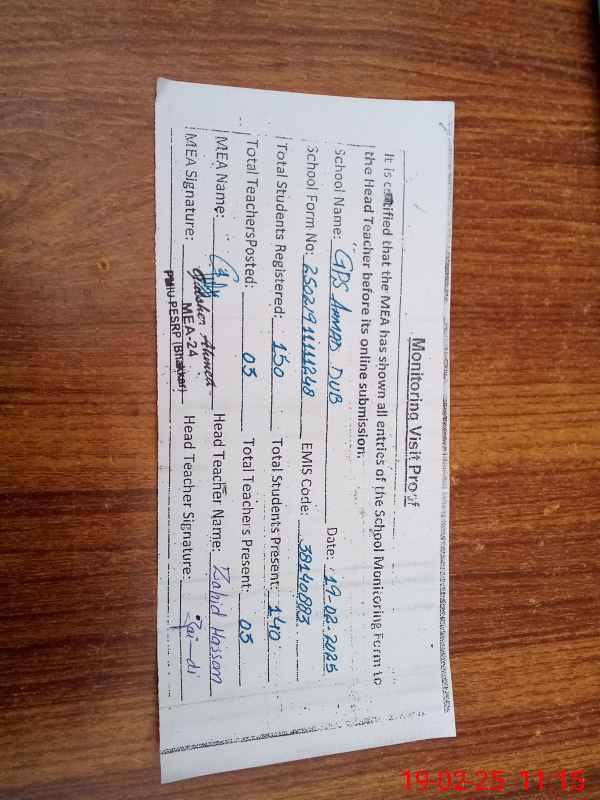 Monitoring Visit Proof
It is certified that the MEA has shown all entries of the School Monitoring Form to
the Head Teacher before its online submission.
School Name: GPS AHMAD DUB Date: 19-02-2025
School Form No: 25021911111248 EMIS Code: 38140883
Total Students Registered: 150 Total Students Present: 140
Total TeachersPosted: 05 Total Teachers Present: 05
MEA Name: Ahmed Head Teacher Name: Zahid Hassan
MEA Signature: MEA-24 Head Teacher Signature:
PMIU-PESRP (Bhakkar)
19-02-25 11:15